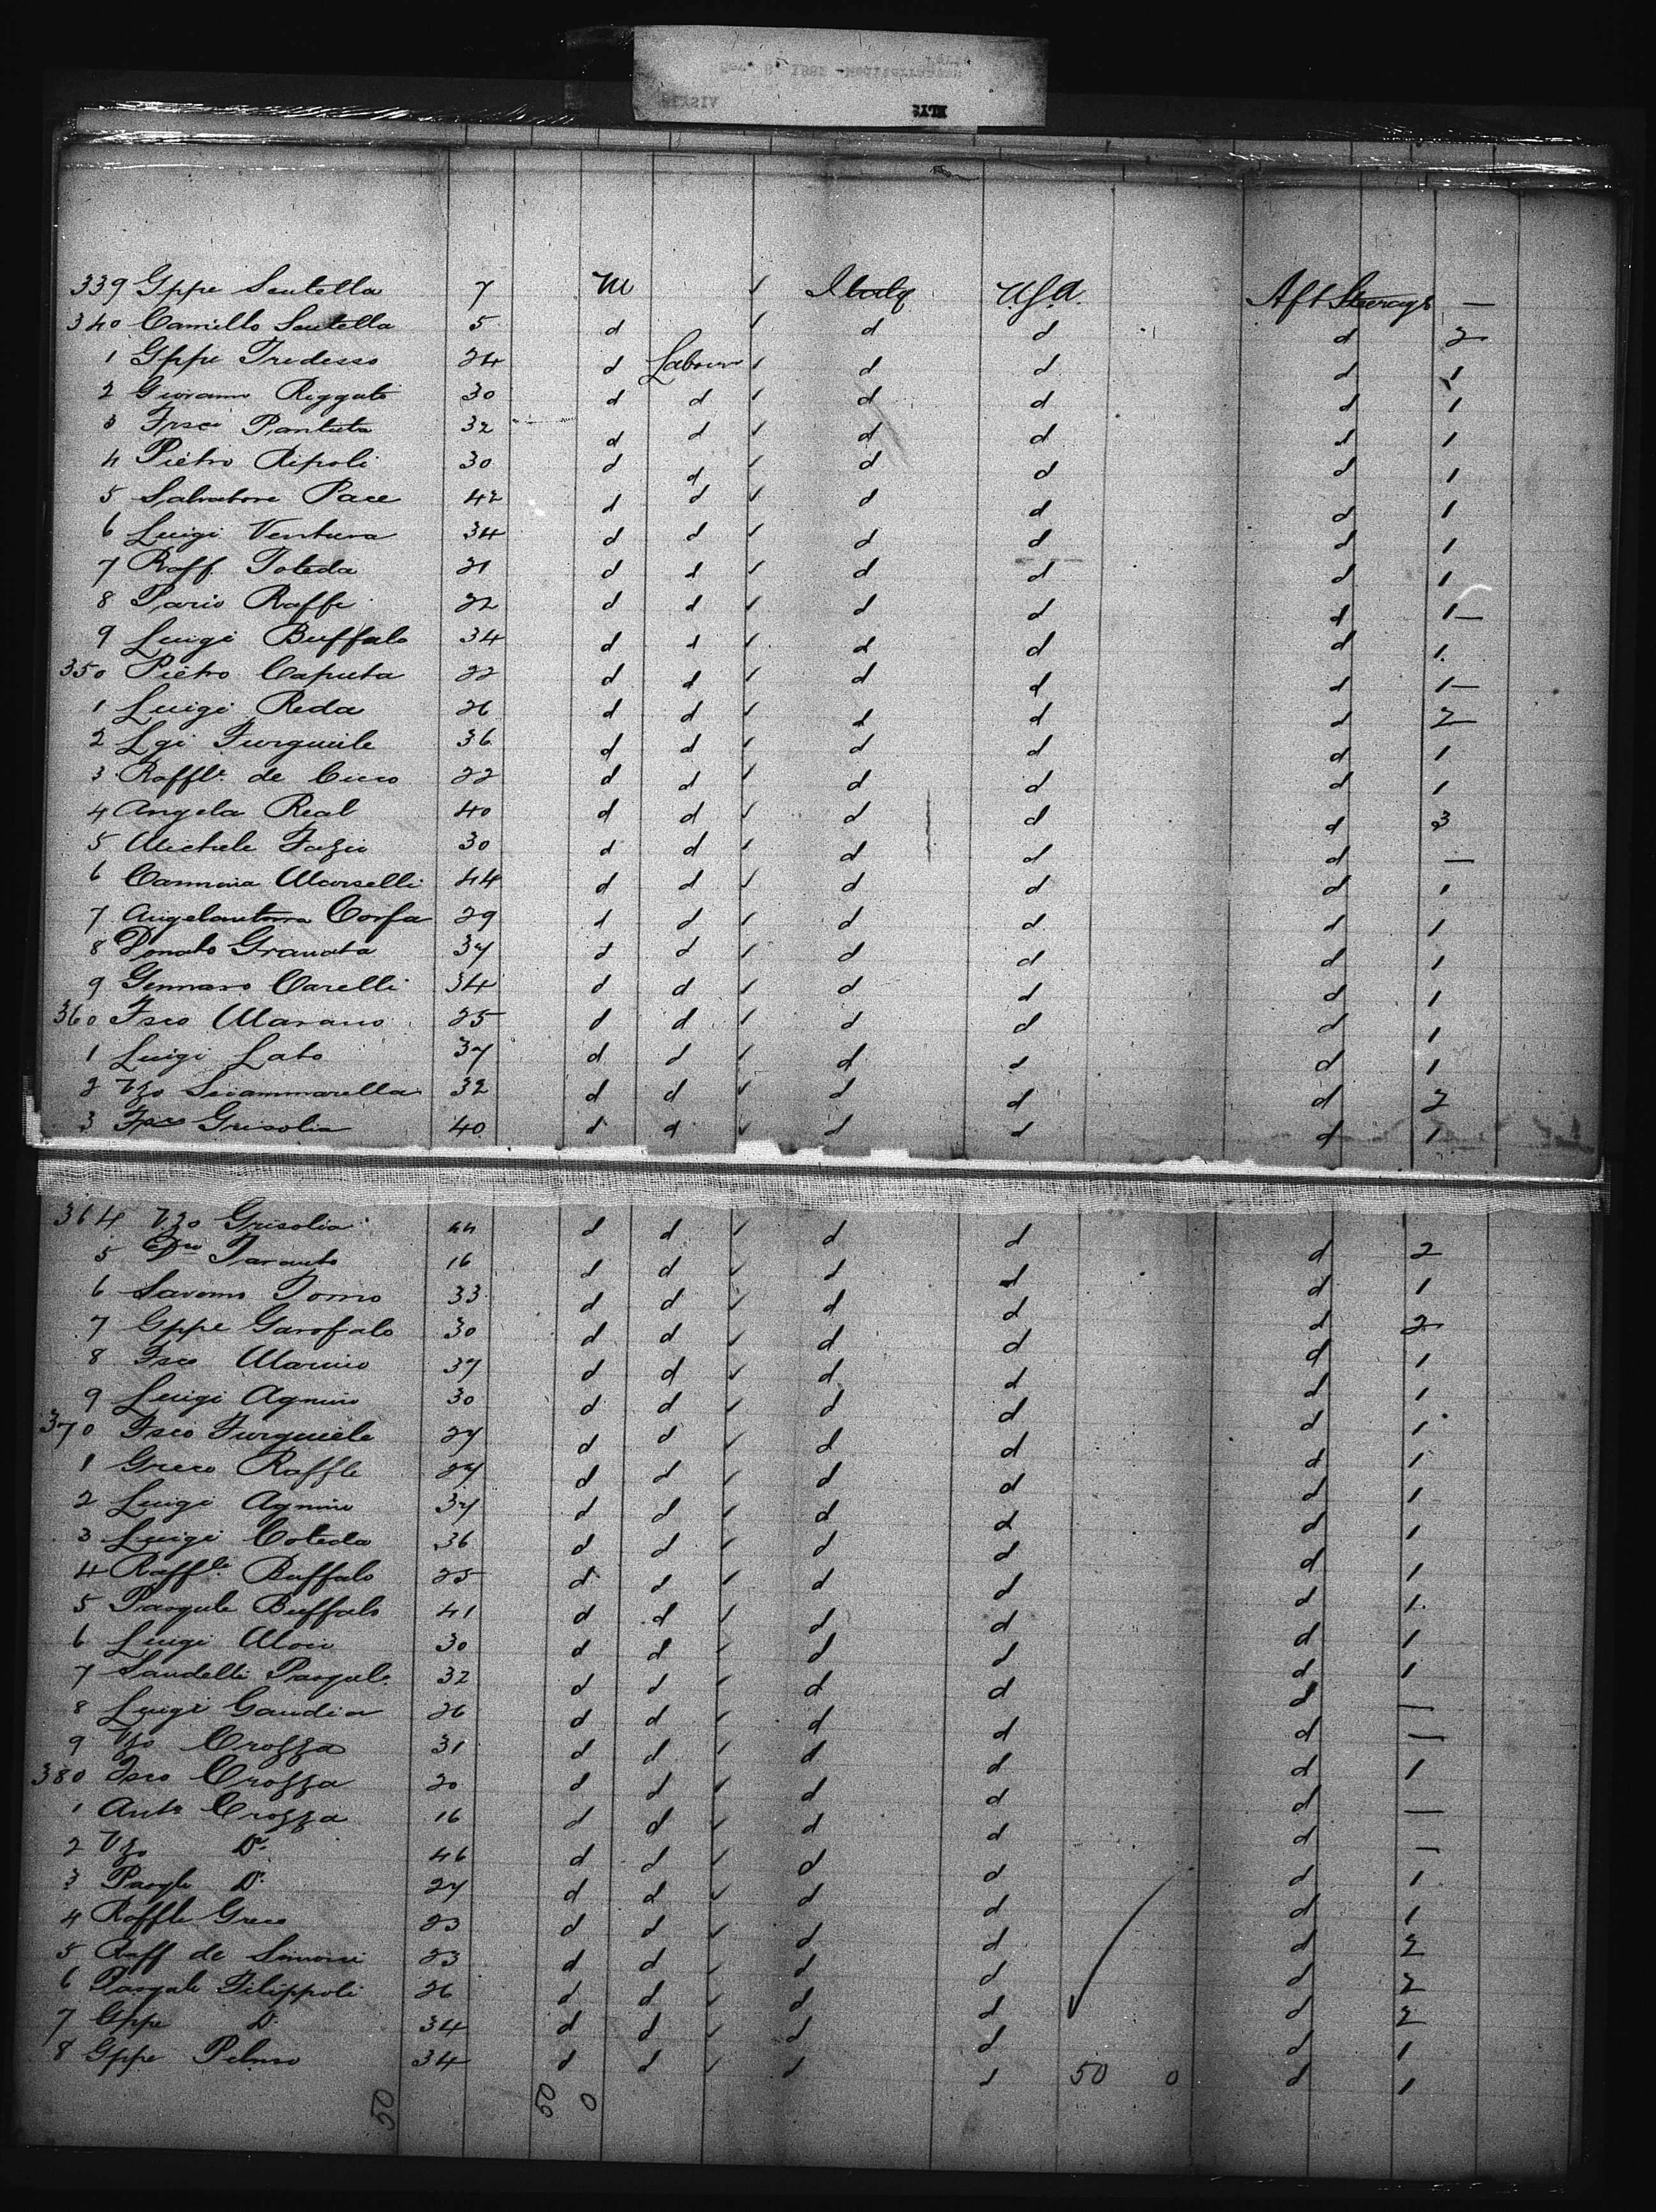 339 Gppe Scutella 7 m ✓ Italy U.S.A. Aft Steerage —
340 Camillo Scutella 5 d ✓ d d d 2
1 Gppe Tredesso 24 d Labourer ✓ d d d 1
2 30 d d ✓ d d d 1
3 32 d d ✓ d d d 1
4 Pietro Ripoli 30 d d ✓ d d d 1
5 Salvatore Pace 42 d d ✓ d d d 1
6 Luigi Ventura 34 d d ✓ d d d 1
7 Raff. Toteda 21 d d ✓ d d d 1
8 Pario Raffe 22 d d ✓ d d d 1—
9 Luigi Buffalo 34 d d ✓ d d d 1
350 Pietro Caputa 22 d d ✓ d d d 1—
1 Luigi Reda 26 d d ✓ d d d 2
2 Lgi Furguiile 36 d d ✓ d d d 1
3 Raffle de Cicco 22 d d ✓ d d d 1
4 Angela Real 40 d d ✓ d d d 3
5 Michele Fazio 30 d d ✓ d d d —
6 Marselli 44 d d ✓ d d d 1
7 Corfa 29 d d ✓ d d d 1
8 Donato Granata 37 d d ✓ d d d 1
9 Gennaro Carelli 34 d d ✓ d d d 1
360 Fsco Marano 25 d d ✓ d d d 1
1 Luigi Lato 37 d d ✓ d d d 1
2 Vzo Sciammarella 32 d d ✓ d d d 2
3 Fsco Grisolia 40 d d ✓ d d d 1
364 Vzo Grisolia 44 d d ✓ d d d 2
5 Taranto 16 d d ✓ d d d 1
6 Saverno Torno 33 d d ✓ d d d 2
7 Gppe Garofalo 30 d d ✓ d d d 1
8 Fsco Marino 37 d d ✓ d d d 1
9 Luigi Agnino 30 d d ✓ d d d 1
370 Fsco Furguiele 27 d d ✓ d d d 1
1 Greco Raffle 27 d d ✓ d d d 1
2 Luigi Agnino 37 d d ✓ d d d 1
3 Luigi Coteda 36 d d ✓ d d d 1
4 Raffle Buffalo 25 d d ✓ d d d 1
5 Pasqule Buffalo 41 d d ✓ d d d 1
6 Luigi 30 d d ✓ d d d 1
7 Saudelli Pasqule 32 d d ✓ d d d —
8 Luigi Gaudia 26 d d ✓ d d d —
9 Vzo Crozza 31 d d ✓ d d d 1
380 Fsco Crozza 20 d d ✓ d d d —
1 Anto Crozza 16 d d ✓ d d d —
2 Vzo Do 46 d d ✓ d d d 1
3 Pasqle Do 27 d d ✓ d d d 1
4 Raffle Greco 23 d d ✓ d d d 2
5 Raff de Simoni 23 d d ✓ d d d 2
6 Pasqale Filippoli 26 d d ✓ d d d 2
7 Gppe Do 34 d d ✓ d d d 1
8 Gppe Peluso 34 d d ✓ d d 50 0 d 1
50 50 0